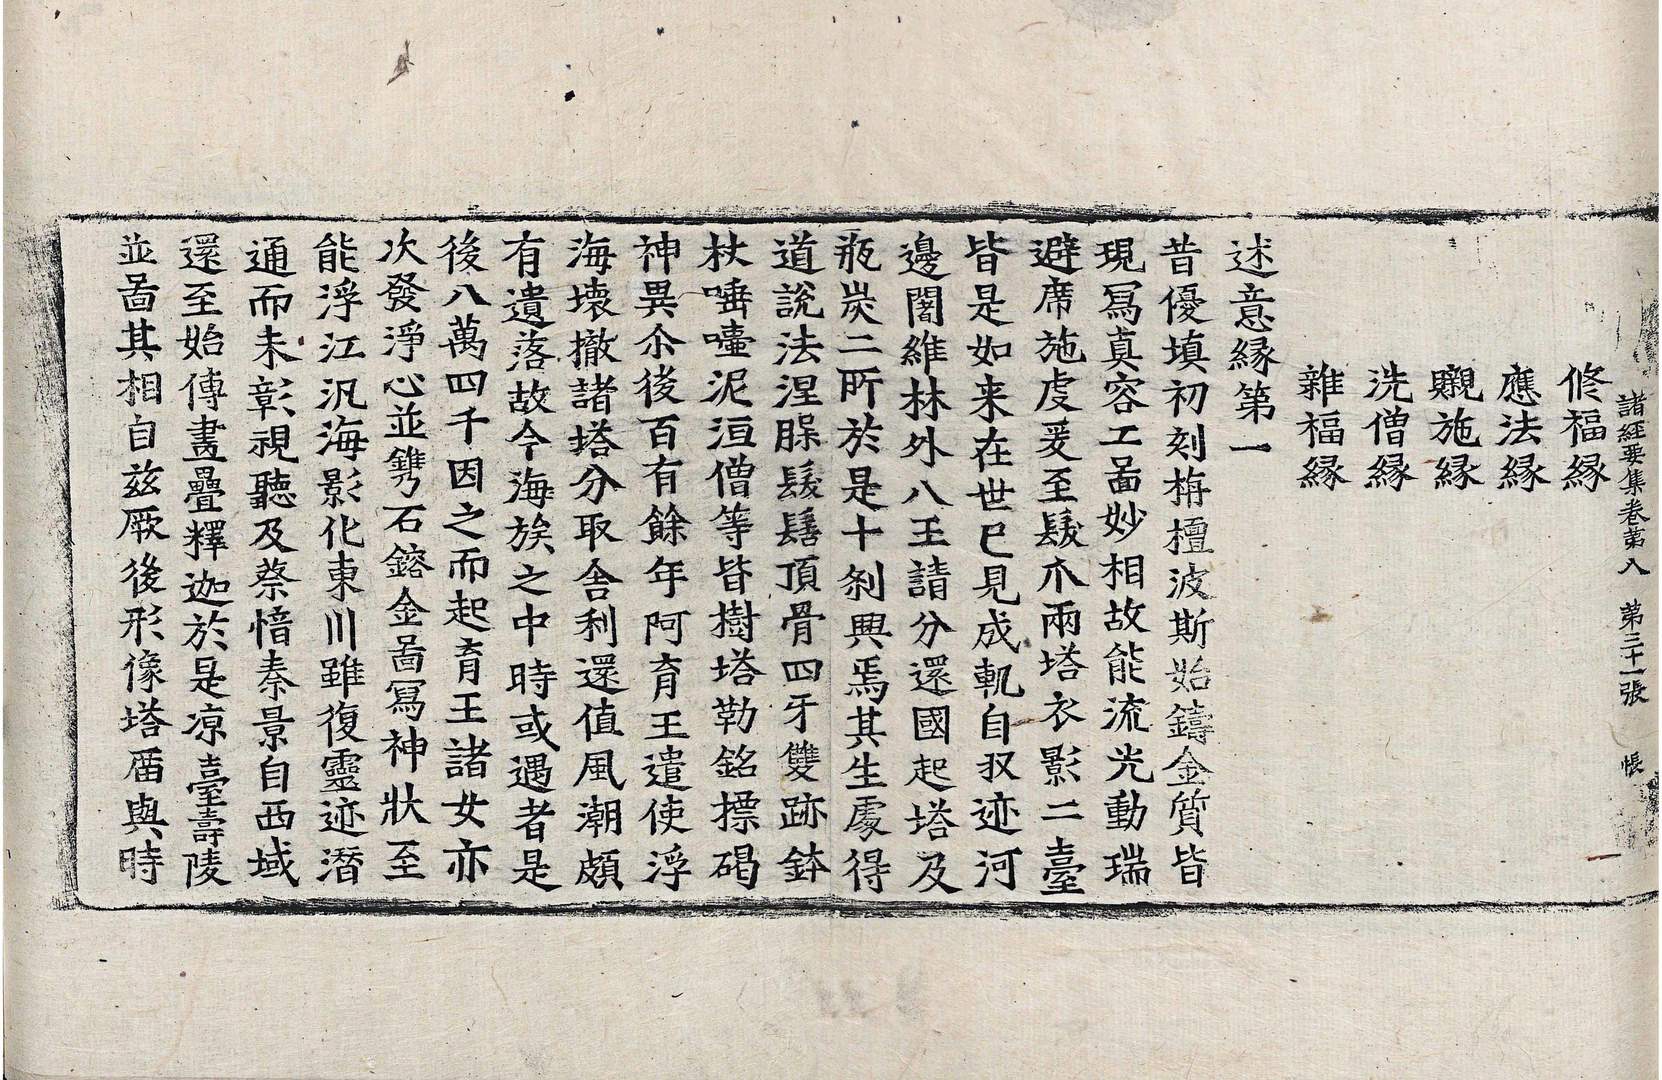 諸經要集卷第八 第三十一張 帳
修福緣
應法緣
嚫施緣
洗僧緣
雜福緣
述意緣第一
昔優填初刻栴檀波斯始鑄金質皆
現寫真容工啚妙相故能流光動瑞
避席施虔爰至髮爪兩塔衣影二臺
皆是如来在世已見成軌自収迹河
邊闍維林外八王請分還國起塔及
瓶炭二所於是十刹興焉其生處得
道說法涅槃髮髻頂骨四牙雙跡鉢
杖唾壺泥洹僧等皆樹塔勒銘摽碣
神異尒後百有餘年阿育王遣使浮
海壞撤諸塔分取舎利還值風潮頗
有遺落故今海族之中時或遇者是
後八萬四千因之而起育王諸女亦
次發淨心並鐫石鎔金啚寫神狀至
能浮江汎海影化東川雖復靈迹潛
通而未彰視聽及蔡愔秦景自西域
還至始傳畫疊釋迦於是凉臺壽陵
並啚其相自玆厥後形像塔廟與時